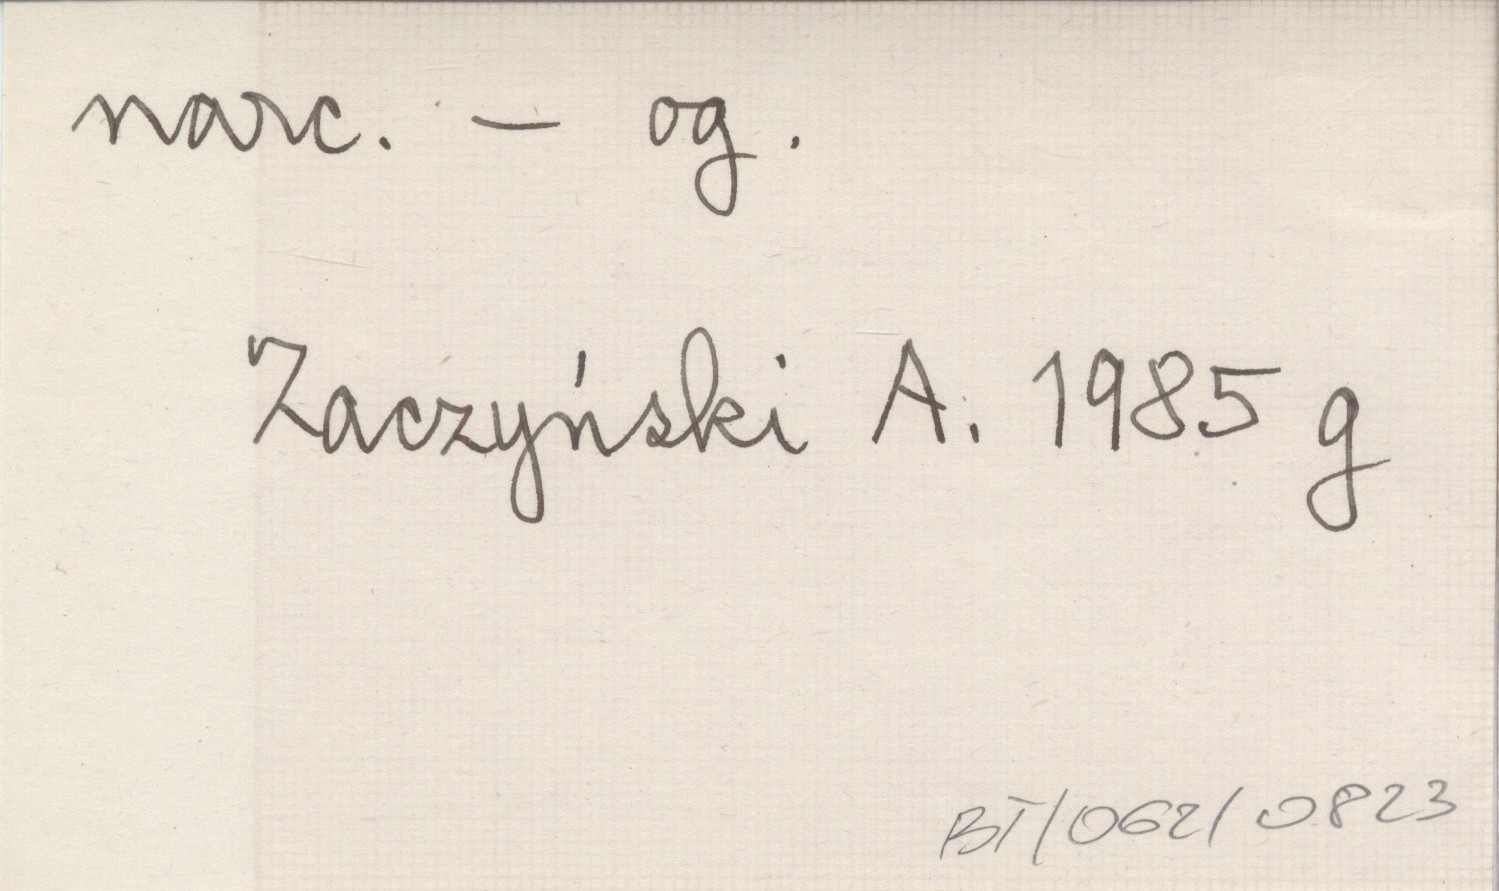 narc. — og.
Zaczyński A. 1985 g
BT/062/0823